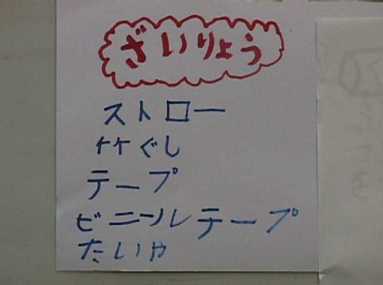 ざいりょう
ストロー
竹ぐし
テープ
ビニールテープ
たいや